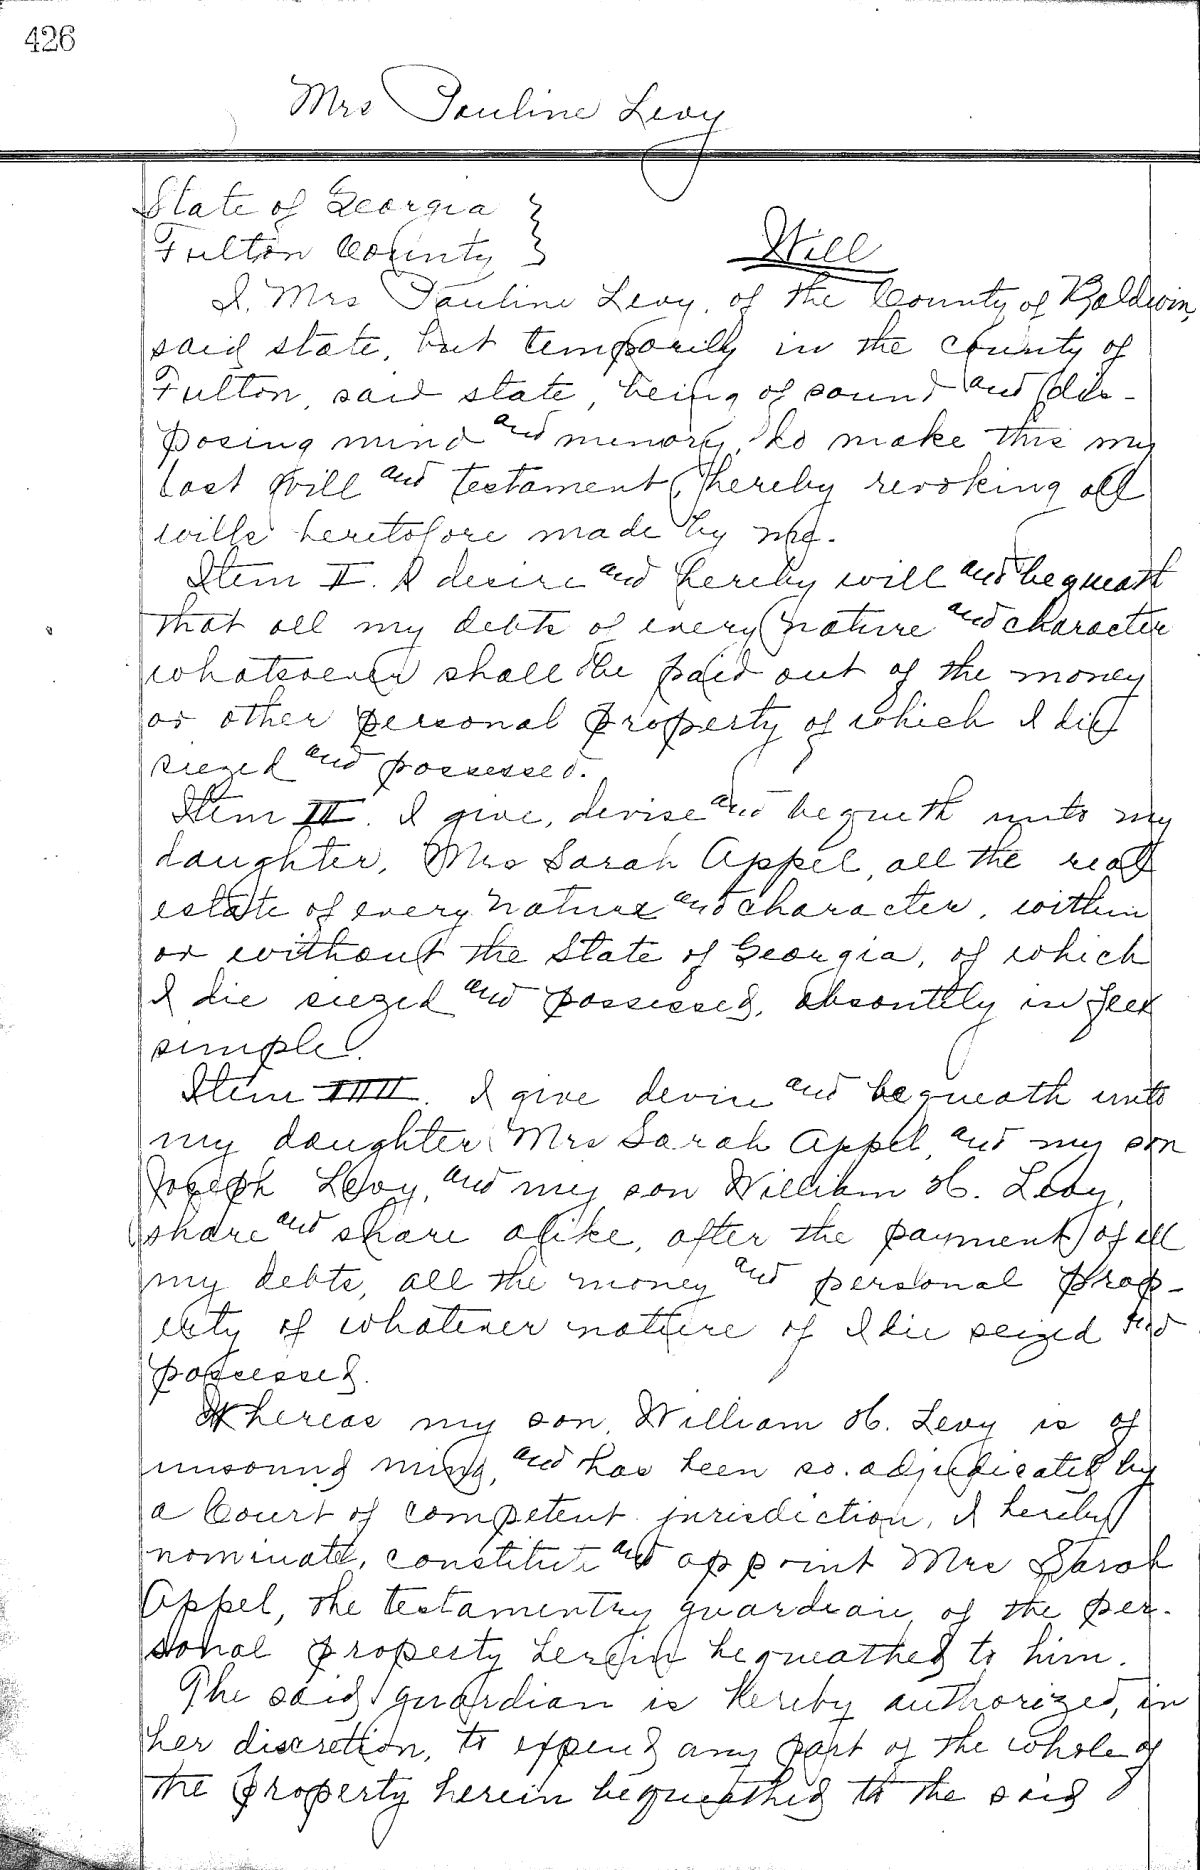 426
Mrs Pauline Levy
State of Georgia }
Fulton County }
Will
I, Mrs Pauline Levy, of the County of Baldwin,
said state, but temporily in the county of
Fulton, said state, being of sound and dis-
posing mind and memory, do make this my
last will and testament, hereby revoking all
wills heretofore made by me.
Item I. I desire and hereby will and bequeath
that all my debts of every nature and character
whatsoever shall be paid out of the money
or other personal property of which I die
siezed and possessed.
Item II. I give, devise and bequeth unto my
daughter, Mrs Sarah Appel, all the real
estate of every nature and character, within
or without the State of Georgia, of which
I die siezed and possessed, absoutely in fee
simple.
Item III. I give devise and bequeath unto
my daughter Mrs Sarah Appel, and my son
Joseph Levy, and my son William H. Levy,
share and share alike, after the payment of all
my debts, all the money and personal prop-
erty of whatever nature of I die seized and
possessed.
Whereas my son, William H. Levy is of
unsound mind, and has been so adjudicated by
a Court of competent jurisdiction, I hereby
nominate, constitute and appoint Mrs Sarah
Appel, the testamentry guardian of the per-
sonal property herein bequeathed to him.
The said guardian is hereby authorized, in
her discretion, to expend any part of the whole of
the property herein bequeathed to the said